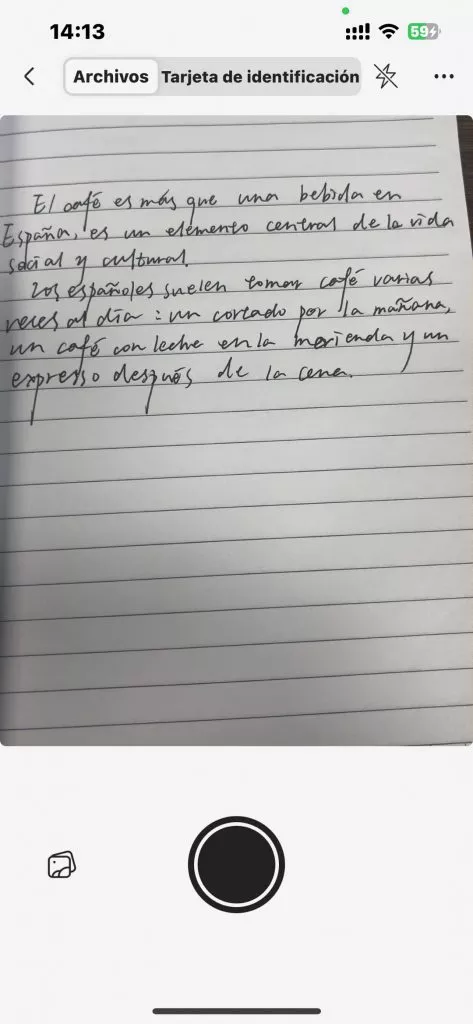 14:13
59
Archivos Tarjeta de identificación
El café es más que una bebida en
España, es un elemento central de la vida
social y cultural.
Los españoles suelen tomar café varias
veces al día : un cortado por la mañana,
un café con leche en la merienda y un
expresso después de la cena.